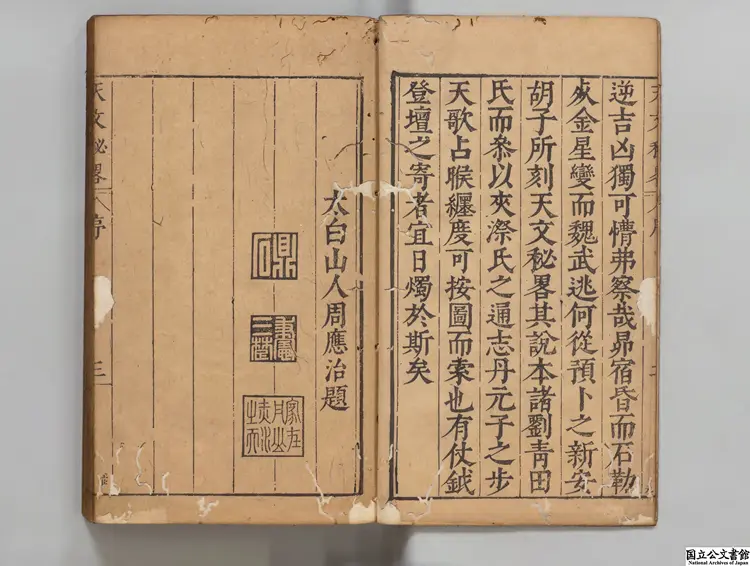 逆吉凶獨可懵弗察哉昴宿昏而石勒
金星變而魏武逃何從預卜之新安
胡子所刻天文秘畧其說本諸劉青田
氏而叅以夾漈氏之通志丹元子之步
天歌占㬋纒度可按圖而索也有仗鉞
登壇之寄者宜日燭於斯矣
太白山人周應治題
鼎石
天文秘畧 序
三
国立公文書館
National Archives of Japan